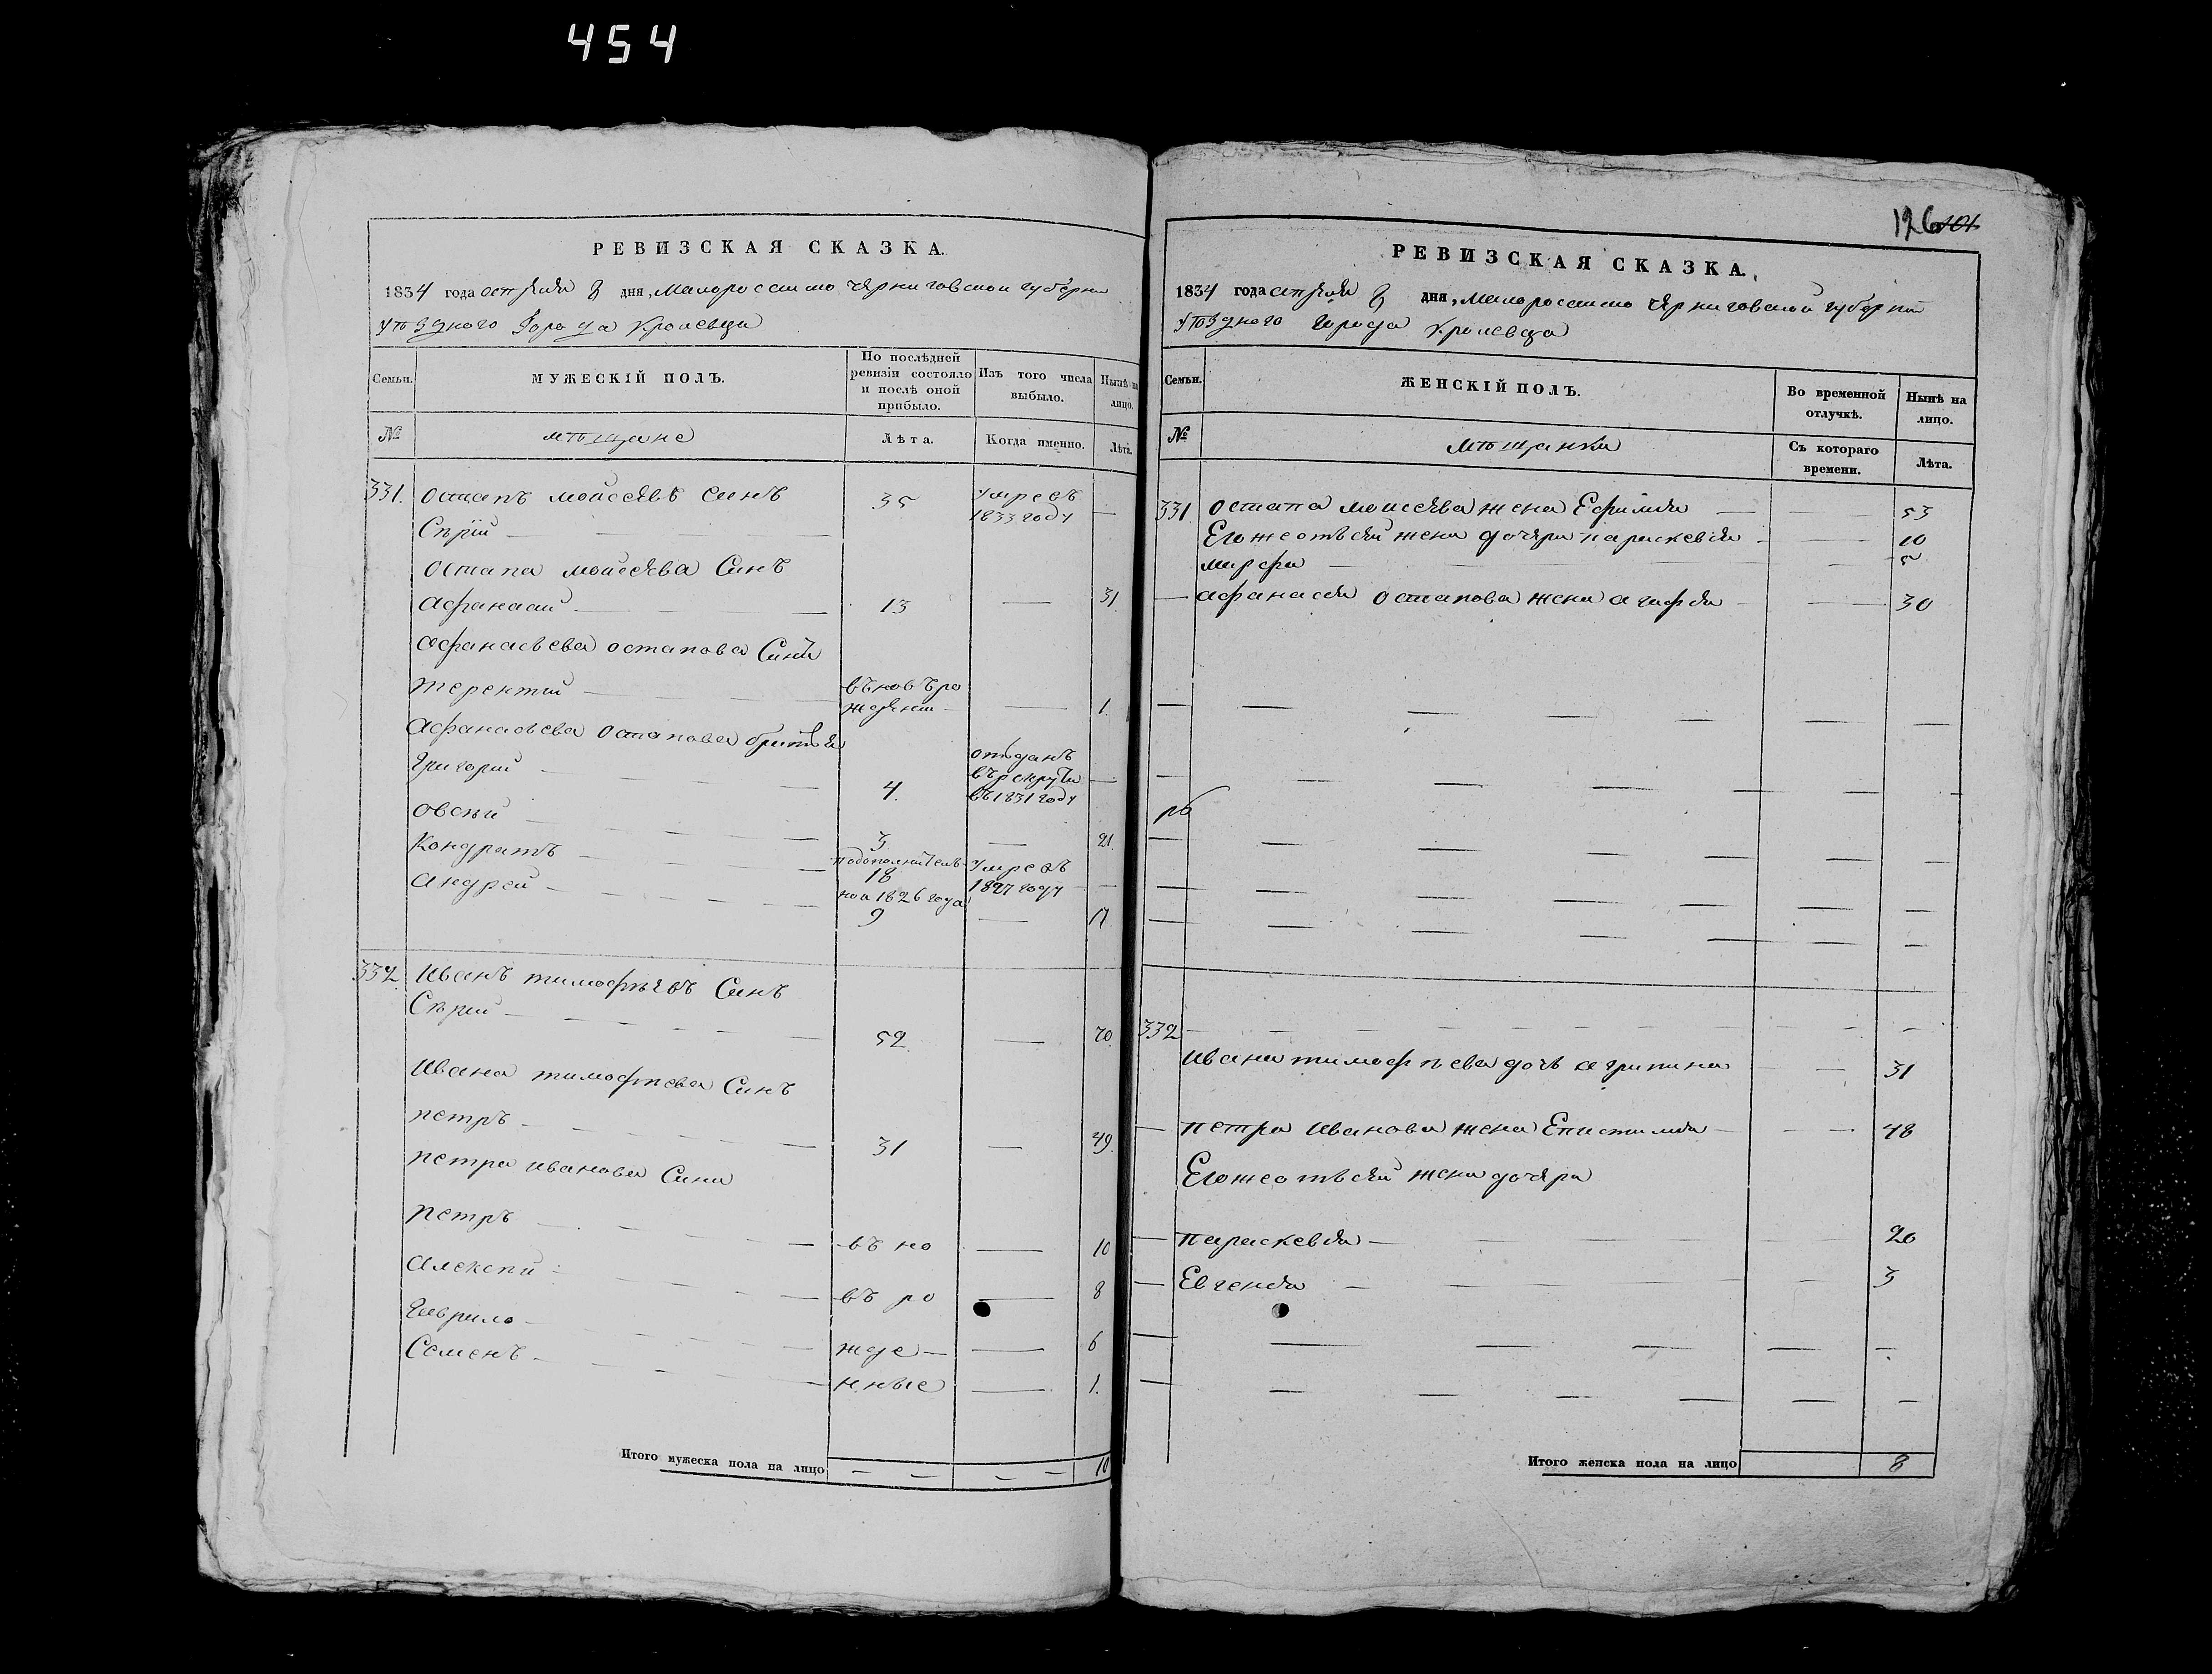 454
РЕВИЗСКАЯ СКАЗКА.
1834 года апреля 8 дня, Малоросийско Черниговской губерни
уѣздного Города Кролевца
Семьи.
МУЖЕСКІЙ ПОЛЪ.
По послѣдней ревизіи состояло и послѣ оной прибыло.
Изъ того числа выбыло.
Нынѣ на лицо.
№
мѣщане
Лѣта.
Когда именно.
Лѣта.
331. Остапъ мойсеевъ синъ 35 умревъ —
Сѣрій — 1833 году
Остапа мойсеева Синъ
Афанасий — 13 — 31
Афанасьева остапова Синъ
терентий — въновъро
жденни — — 1.
Афанасьева Остапова братья
Григорий — 4. отъданъ върекруты въ1831 году —
Овсѣй — 3 — 21.
Кондратъ — 18 умревъ 1827 году —
подополнительной 1826 года
Андрей — 9 — 17
332. Иванъ тимофѣевъ Синъ
Сѣрий — 52. — 70.
Ивана тимофѣева Синъ
петръ — 31 — 49.
петра иванова Сини
петръ — въ но — 10
Алексѣй — въ ро — 8
Гаврило — жде — 6
Семенъ — нные — 1.
Итого мужеска пола на лицо — — — — 10
126 101
РЕВИЗСКАЯ СКАЗКА.
1834 года апреля 8 дня, Малоросийско Черниговской губерни
уѣздного города Кролевца
Семьи.
ЖЕНСКІЙ ПОЛЪ.
Во временной отлучкѣ.
Нынѣ на лицо.
№
мѣщанки
Съ котораго времени.
Лѣта.
331 Остапа мойсеева жена Ефимия — — 53
Егоже отъсей жены дочери параскевия — — 10
марфа — — 5
— афанасия остапова жена агафия — — 30
332 — — — — — — —
Ивана тимофѣева дочъ агрипина — 31
— петра иванова жена Епистимия — — 48
Егоже отъсей жени дочери
— параскевия — — — 20
— Евгения — — — 3
Итого женска пола на лицо 8